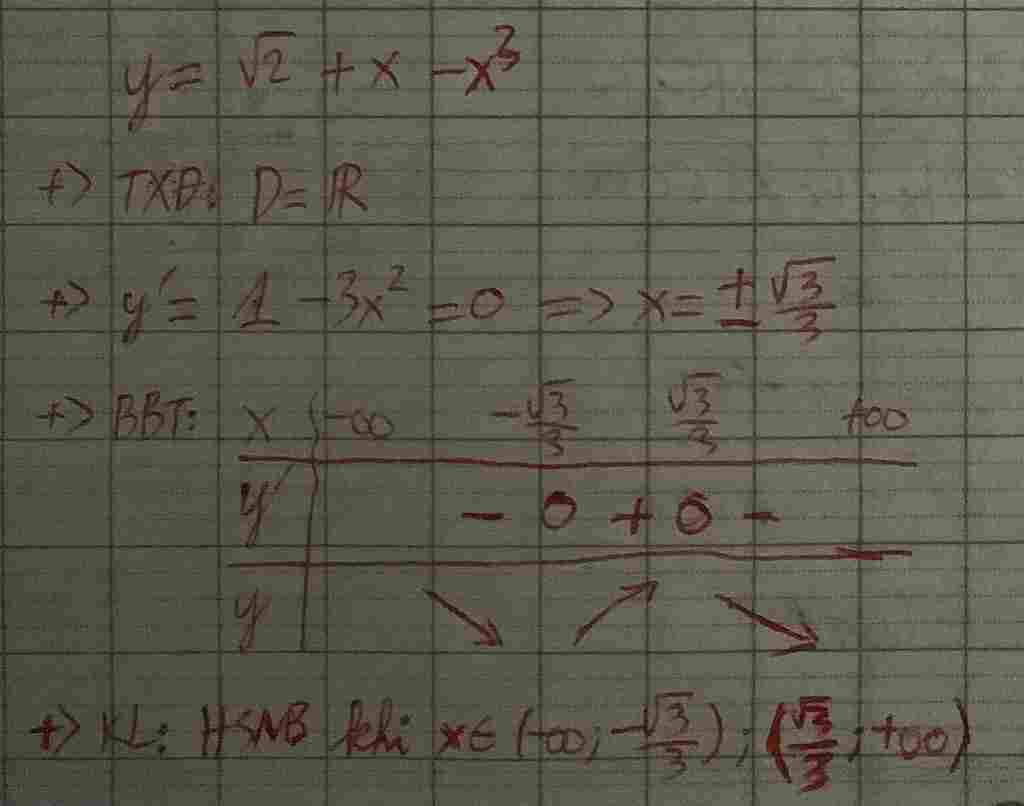 y = √2 + x - x³
+> TXĐ: D = ℝ
+> y' = 1 - 3x² = 0 => x = ± √3/3
+> BBT: x -∞ -√3/3 √3/3 +∞
y' - 0 + 0 -
y ↘ ↗ ↘
+> KL: HSNB khi x ∈ (-∞; -√3/3); (√3/3; +∞)